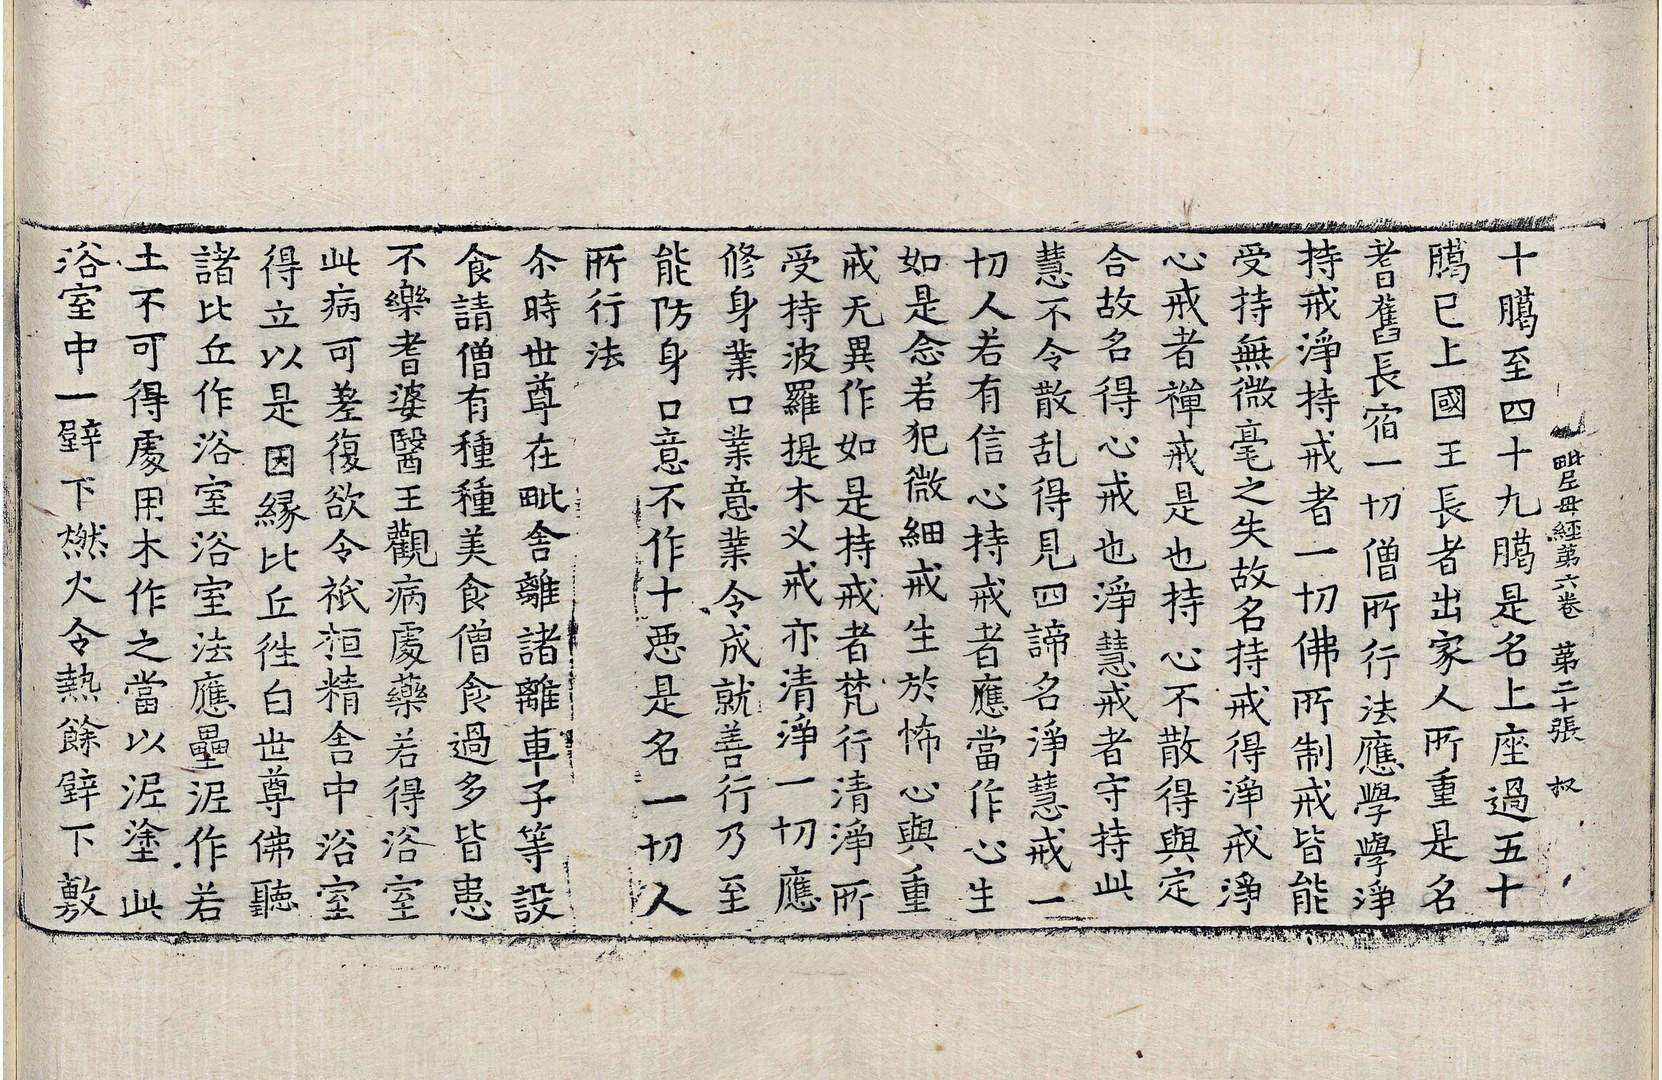 毗尼母經第六卷 第二十張 叔
十臈至四十九臈是名上座過五十
臈已上國王長者出家人所重是名
耆舊長宿一切僧所行法應學學淨
持戒淨持戒者一切佛所制戒皆能
受持無微毫之失故名持戒得淨戒淨
心戒者禪戒是也持心不散得與定
合故名得心戒也淨慧戒者守持此
慧不令散乱得見四諦名淨慧戒一
切人若有信心持戒者應當作心生
如是念若犯微細戒生於怖心與重
戒无異作如是持戒者梵行清淨所
受持波羅提木义戒亦清淨一切應
修身業口業意業令成就善行乃至
能防身口意不作十惡是名一切人
所行法
尒時世尊在毗舍離諸離車子等設
食請僧有種種美食僧食過多皆患
不樂耆婆醫王觀病處藥若得浴室
此病可差復欲令祇桓精舍中浴室
得立以是因緣比丘往白世尊佛聽
諸比丘作浴室浴室法應壘泥作若
土不可得處用木作之當以泥塗此
浴室中一壁下燃火令熱餘壁下敷